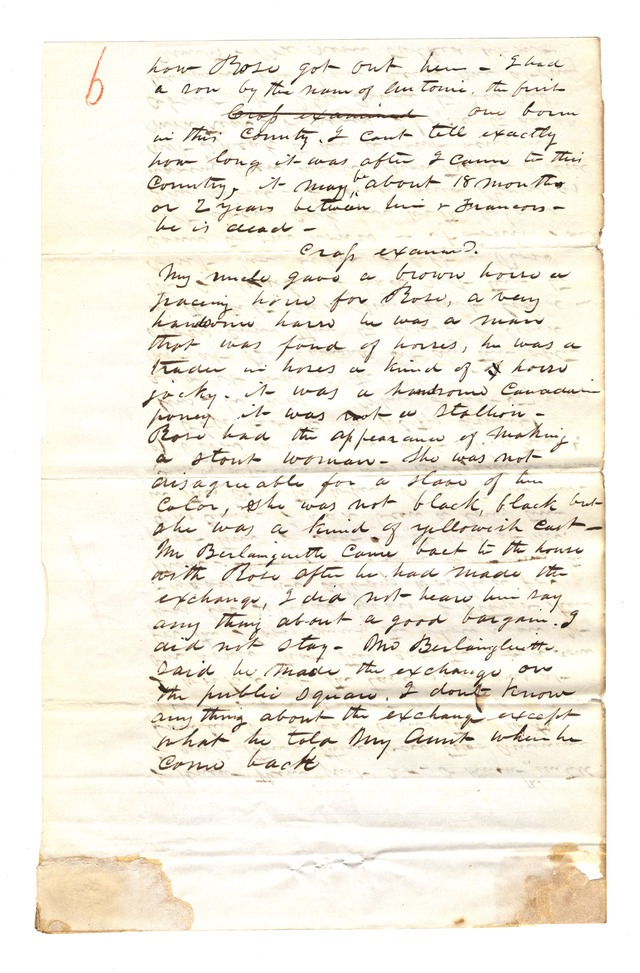 6
how Rose got out here – I had
a son by the name of Antoine, the first
Cross examined one born
in this County. I cant tell exactly
how long it was after I came to this
Country, it may be about 18 months
or 2 years between him & Francois –
he is dead –
Cross examd.
My uncle gave a brown horse a
pacing horse for Rose, a very
handsome horse he was a man
that was fond of horses, he was a
trader in horses a kind of a horse
jocky. it was a handsome Canadian
poney it was not a stallion –
Rose had the appearance of making
a stout woman – she was not
disagreeable for a slave of her
color, she was not black, black but
she was a kind of yellowish cast –
Mr Berlanguette came back to the house
with Rose after he had made the
exchange, I did not hear him say
any thing about a good bargain. I
did not stay – Mr Berlanguette
said he made the exchange on
the public square. I don't know
any thing about the exchange except
what he told My Aunt when he
come back